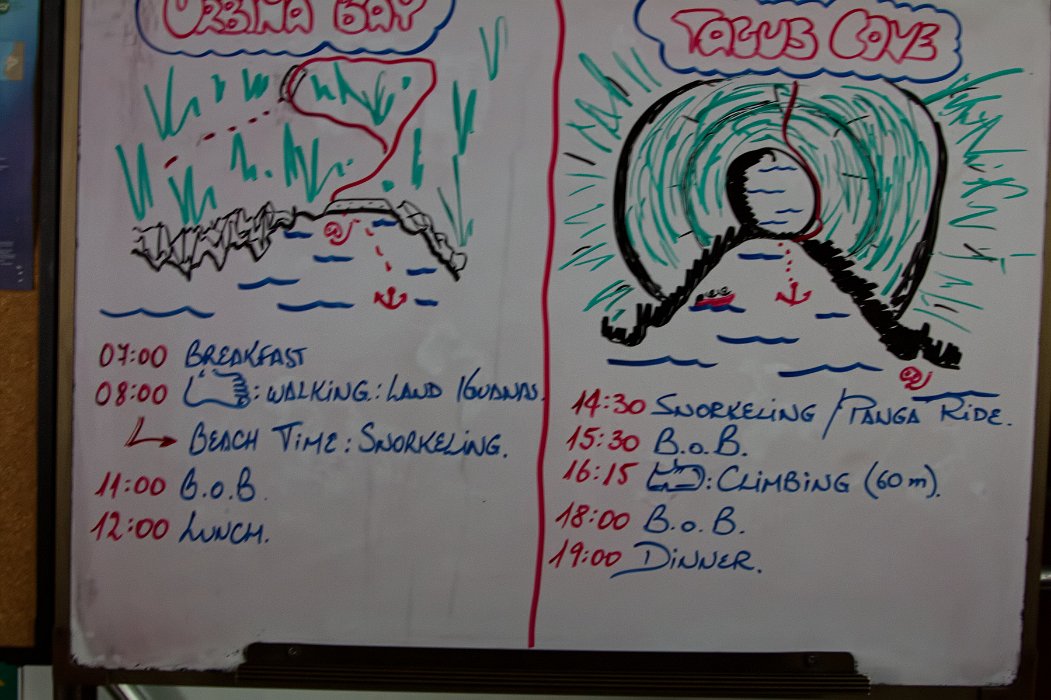 URBINA BAY
07:00 BREAKFAST
08:00 : WALKING : LAND IGUANAS.
BEACH TIME : SNORKELING.
11:00 B.O.B.
12:00 LUNCH.
TAGUS COVE
14:30 SNORKELING / PANGA RIDE.
15:30 B.O.B.
16:15 : CLIMBING (60 m).
18:00 B.O.B.
19:00 DINNER.